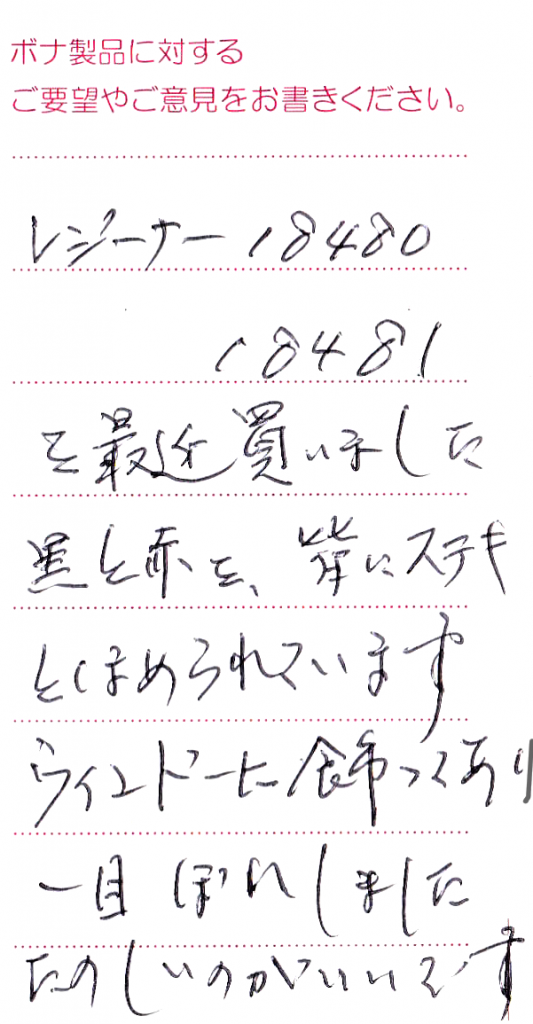 ボナ製品に対する
ご要望やご意見をお書きください。
レジーナー 18480
18481
を最近買いました
黒と赤を、皆にステキ
とほめられています
ウインドーに飾ってあり
一目ぼれしました
たのしいのがいいです